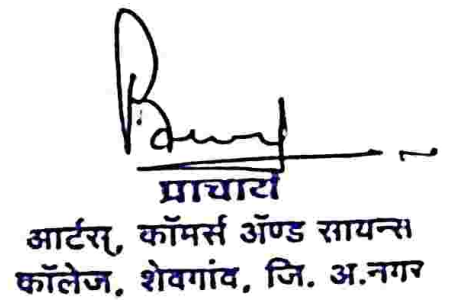 प्राचार्य
आर्टस्, कॉमर्स अ‍ॅण्ड सायन्स
कॉलेज, शेवगांव, जि. अ.नगर